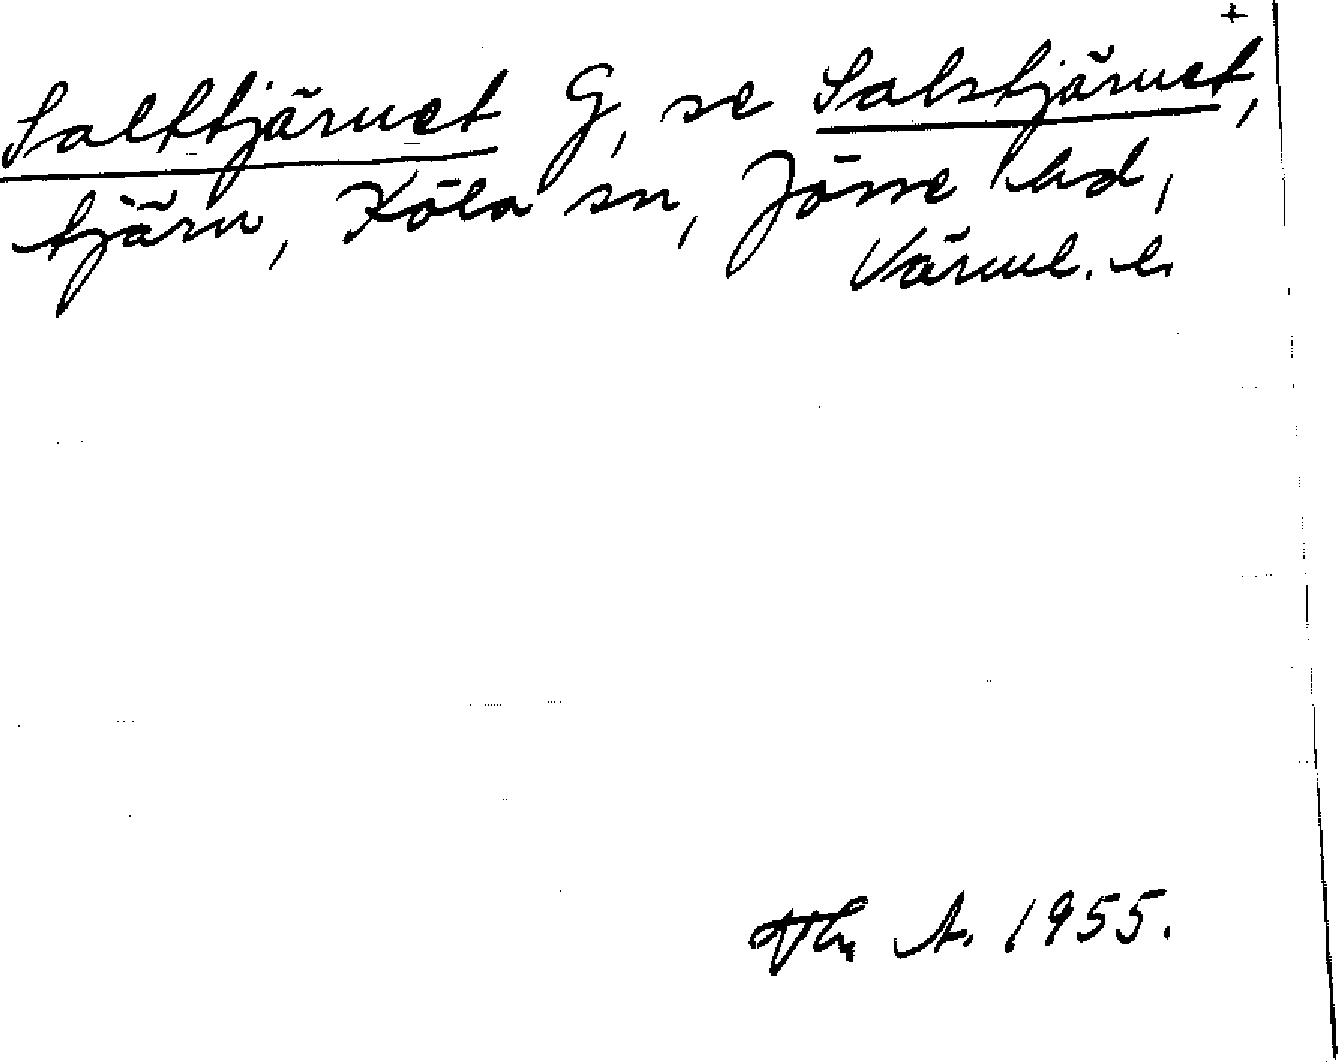 +
Salttjärnet G, se Salstjärnet,
tjärn, Köla sn, Jösse hd,
Värml. l.
Th. A. 1955.